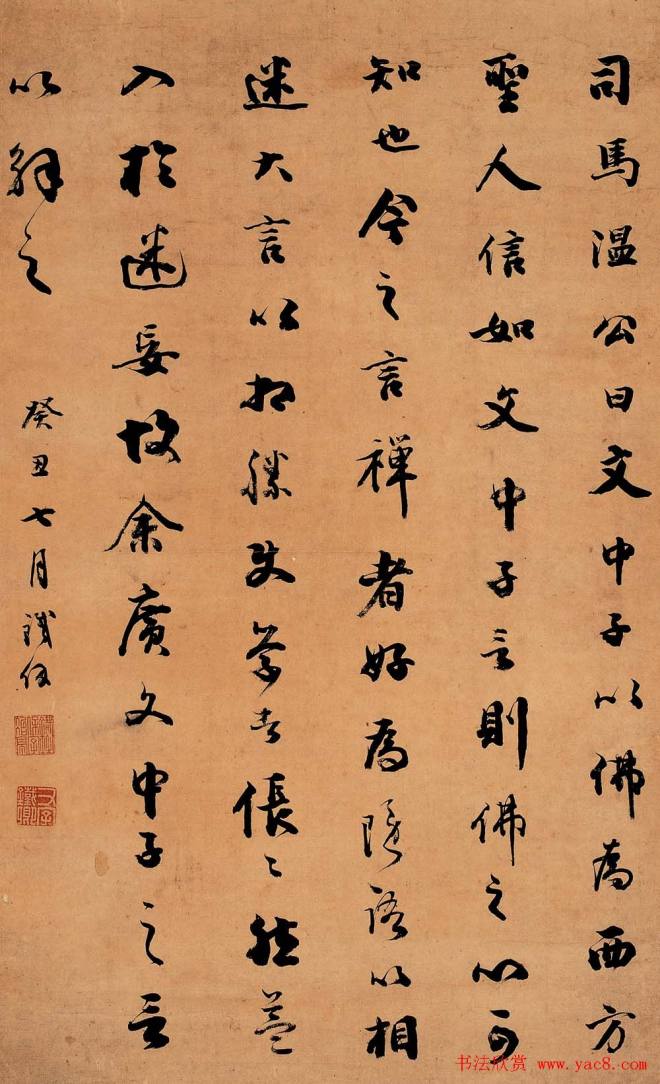 司馬温公曰文中子以佛為西方
聖人信如文中子言則佛之心可
知也今之言禅者好為隱語以相
迷大言以相勝使學者倀〻然益
入於迷妄故余廣文中子之言
以解之
癸丑七月 鐵保
书法欣赏 www.yac8.com